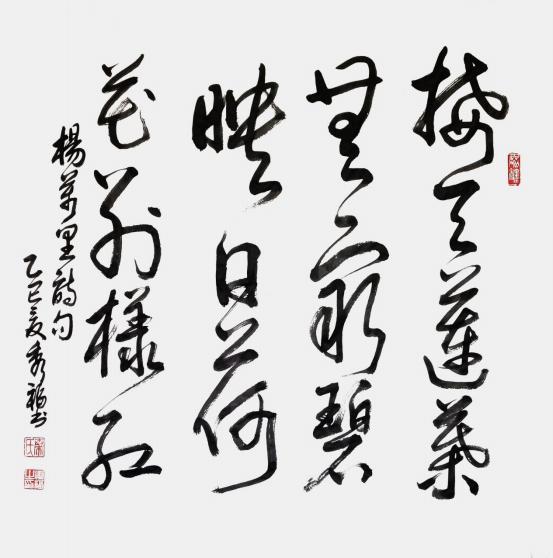 接天莲葉
無窮碧
映日荷
花别樣红
楊萬里詩句
乙巳夏秀